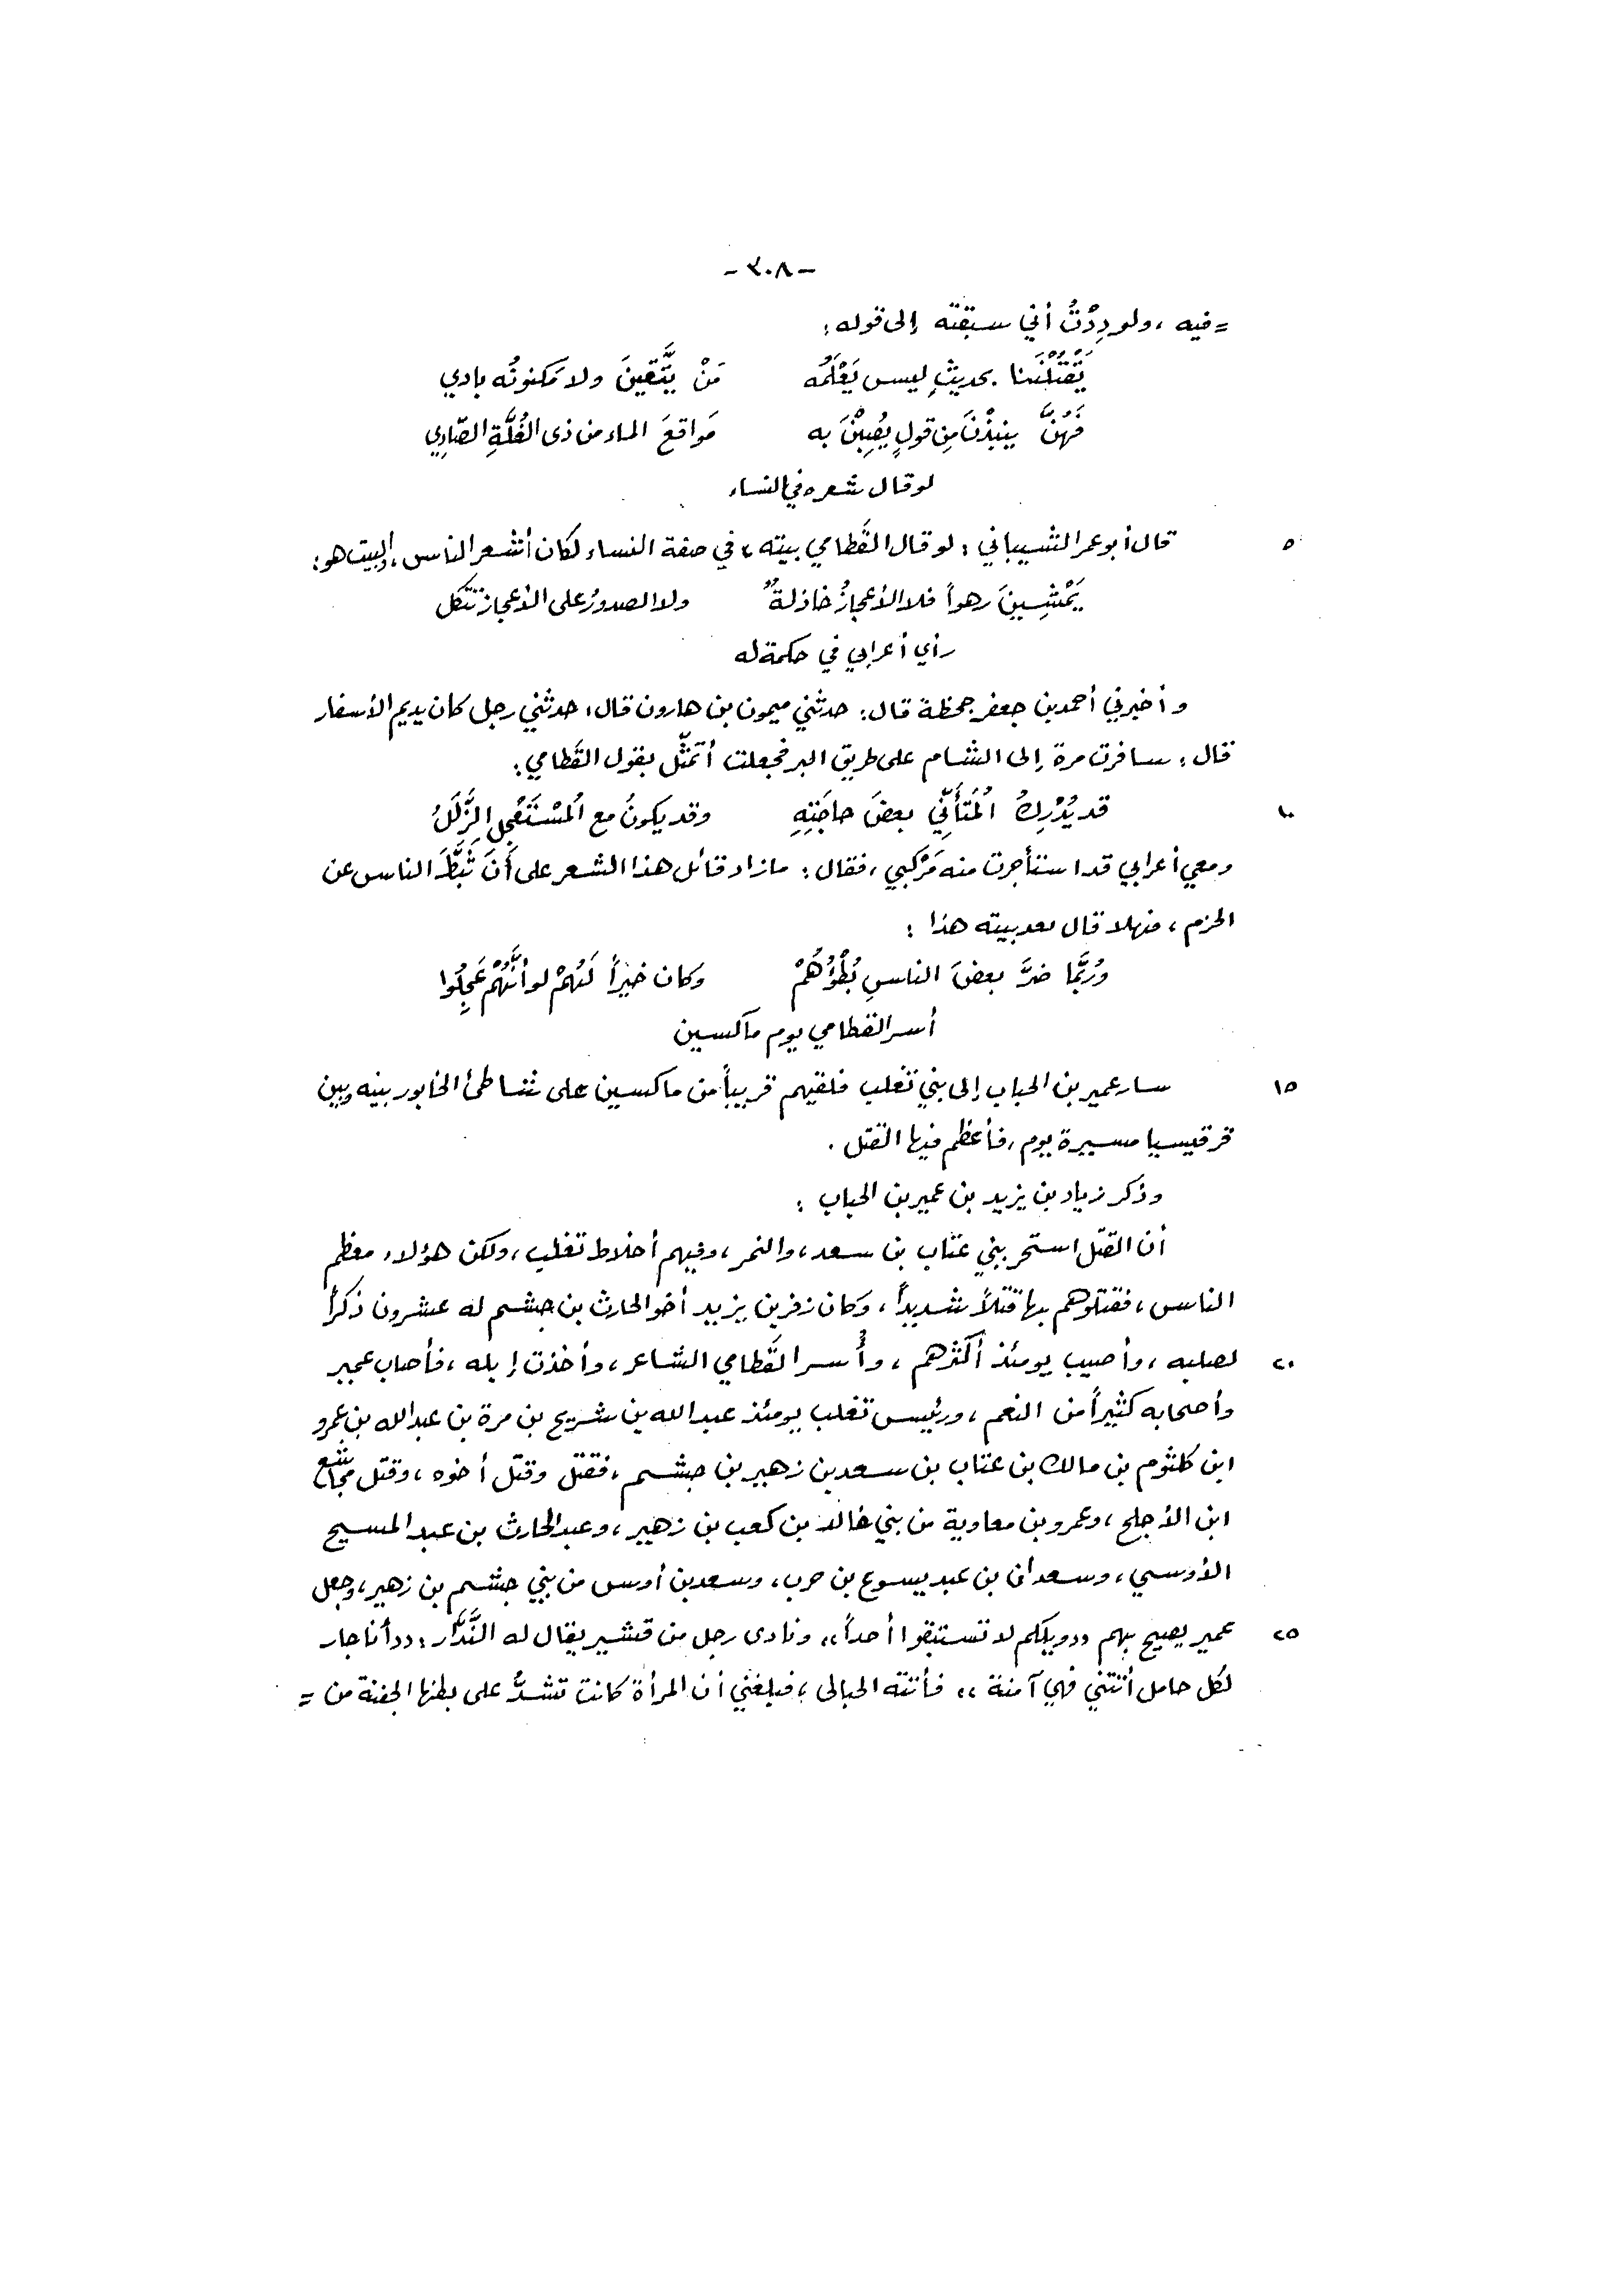 - ٣٠٨ -
= فيه ، ولودِدْتُ أني سبقته إلى قوله :
يَقْتُلْنَنا بحديثٍ ليس يَعْلَمُه مَنْ يَتَّقينَ ولا مَكنونُه بادي
فَهُنَّ ينبِذْنَ مِن قولٍ يُصِبْنَ به مَواقعَ الماء من ذى الغُلَّةِ الصّادِي
لو قال شعره في النساء
٥ قال أبو عمر الشيباني : لو قال القَطامي بيته ، في صفة النساء لكان أشعر الناس ، والبيت هو :
يَمْشِينَ رهواً فلا الأعجازُ خاذلةٌ ولا الصدورُ على الأعجاز تتكل
رأي أعرابي في حكمة له
وأخبرني أحمد بن جعفر جحظة قال : حدثني ميمون بن هارون قال : حدثني رجل كان يديم الأسفار
قال : سافرت مرة إلى الشام على طريق البر فجعلت أتمثّل بقول القَطامي :
١٠ قد يُدْرِكُ المُتَأَنِّي بعضَ حاجَتِهِ وقد يكونُ مع المُسْتَعْجِلِ الزَّلَلُ
ومعي أعرابي قد استأجرت منه مَرْكبي ، فقال : ما زاد قائل هذا الشعر على أنَ ثَبَّطَ الناس عن
الحزم ، فهلا قال بعد بيته هذا :
ورُبَّما ضرَّ بعضَ الناسِ بُطْؤُهُمْ وكان خيراً لَهُمْ لو أنَّهُمْ عَجِلُوا
أسر القطامي يوم ماكسين
١٥ سار عمير بن الحباب إلى بني تغلب فلقيهم قريباً من ماكسين على شاطئ الخابور بينه وبين
قرقيسيا مسيرة يوم ، فأعظم فيها القتل .
وذكر زياد بن يزيد بن عمير بن الحباب :
أن القتل استحر ببني عتّاب بن سعد ، والنمر ، وفيهم أخلاط تغلب ، ولكن هؤلاء معظم
الناس ، فقتلوهم بها قتلاً شديداً ، وكان زفر بن يزيد أخو الحارث بن جشم له عشرون ذكراً
٢٠ لصلبه ، وأصيب يومئذ أكثرهم ، وأُسر القَطامي الشاعر ، وأخذت إبله ، فأصاب عمير
وأصحابه كثيراً من النعم ، ورئيس تغلب يومئذ عبد الله بن شريح بن مرة بن عبد الله بن عمرو
ابن كلثوم بن مالك بن عتاب بن سعد بن زهير بن جشم ، فقتل وقتل أخوه ، وقتل مجاشع
ابن الأجلح ، وعمرو بن معاوية من بني خالد بن كعب بن زهير ، وعبد الحارث بن عبد المسيح
الأوسي ، وسعدان بن عبد يسوع بن حرب ، وسعد بن أوس من بني جشم بن زهير ، وجعل
٢٥ عمير يصيح بهم ,, ويلكم لا تستبقوا أحداً ,, ونادى رجل من قشير يقال له النَّدَّار : ,, أنا جار
لكل حامل أتتني فهي آمنة ,, فأتته الحبالى ، فبلغني أن المرأة كانت تشدُّ على بطنها الجفنة من =